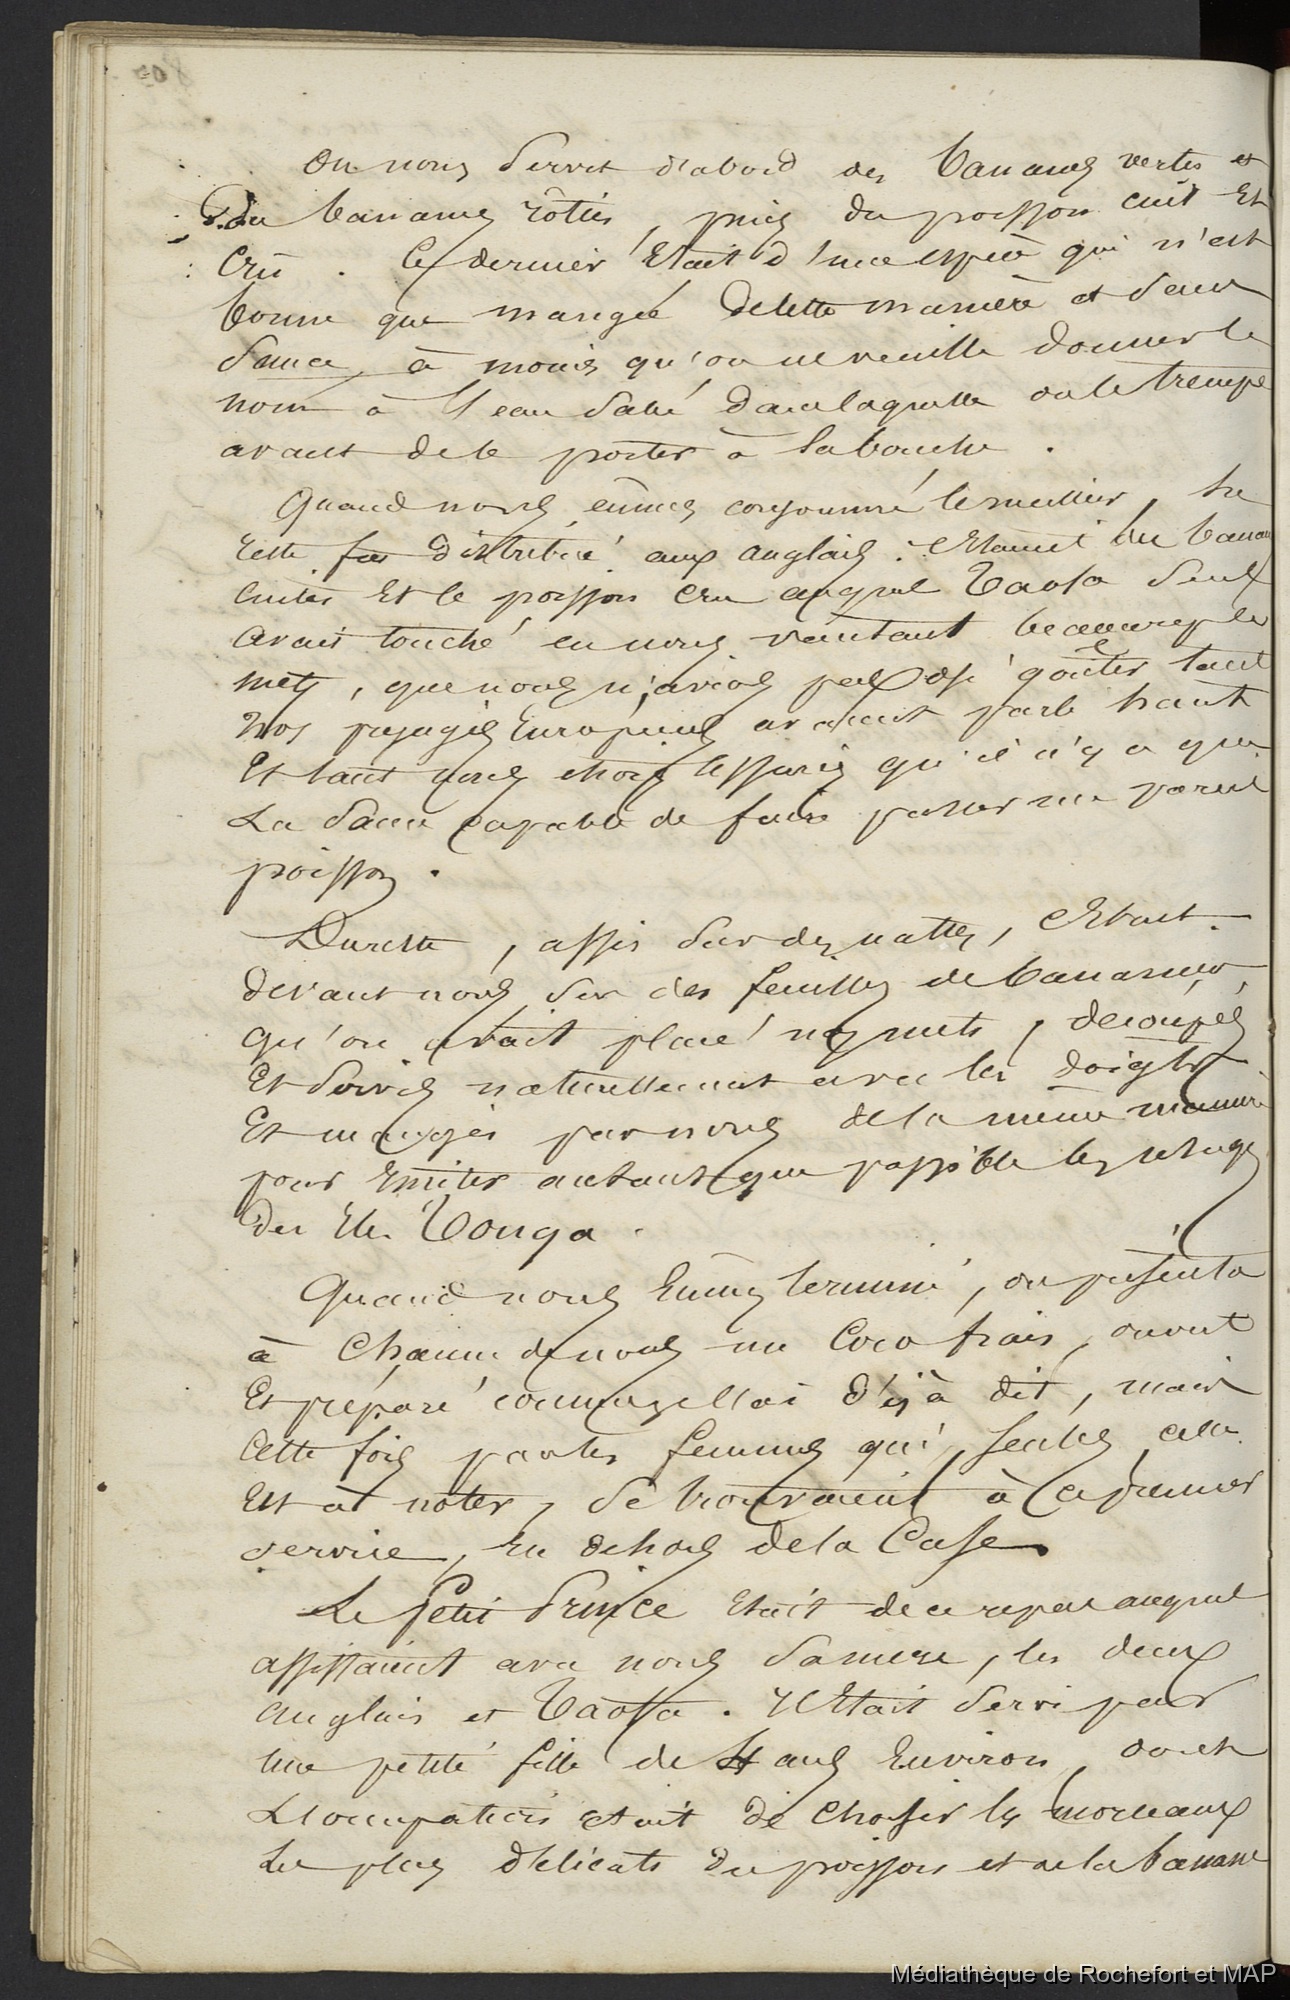 On nous servit d'abord des bananes vertes et
des bananes rôties, puis du poisson cuit Et
Crû. Ce dernier Etait d'une espèce qui n'est
bonne que mangée de cette manière et sans
sauce, à moins qu'on ne veuille donner le
nom à l'eau salée dans laquelle on le trempe
avant de le porter à la bouche.
Quand nous eûmes consommé le meilleur, le
reste fut distribué aux anglais. C'Etaient les banan
cuites Et le poisson cru auquel Taofa seul
avait touché en nous vantant beaucoup les
mets, que nous n'avions pas osé goûter tant
nos préjugés Européens avaient parlé haut
Et tant nous étions assurés qu'il n'y a que
La sauce capable de faire passer un pareil
poisson.
Du reste, assis sur des nattes, C'Etait
devant nous sur des feuilles de bananier,
qu'on avait placé nos mets, découpés
Et servis naturellement avec les doigts
Et mangés par nous de la même manière
pour Imiter autant que possible les usages
des Iles Tonga.
Quand nous Eûmes terminé, on présenta
à Chacun de nous un Coco frais, ouvert
Et préparé comme je l'ai déjà dit, mais
cette fois par les femmes qui, seules, cela
Est à noter, se trouvaient à ce premier
service, En dehors de la Case.
Le Petit Prince Etait de ce repas auquel
assistaient avec nous sa mère, les deux
anglais et Taofa. Il Etait servi par
une petite fille de 4 ans Environ, dont
L'occupation était de Choisir les morceaux
les plus délicats du poisson et de la banane
Médiathèque de Rochefort et MAP